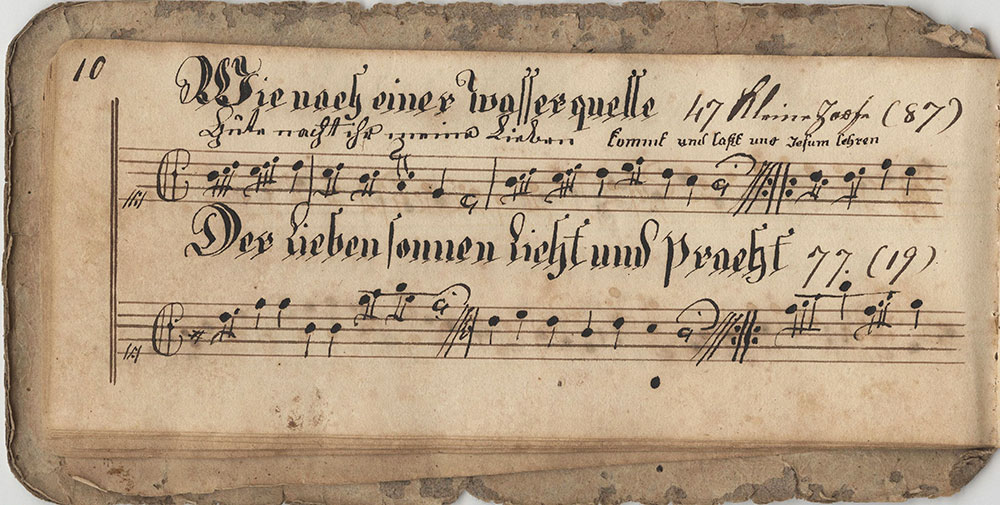 10
Wie nach einer wasserquelle 47 Kleine Harfe (87)
Gute nacht ihr meine Lieben kommt und laßt uns Jesum lehren
Der lieben sonnen licht und pracht 77. (19)